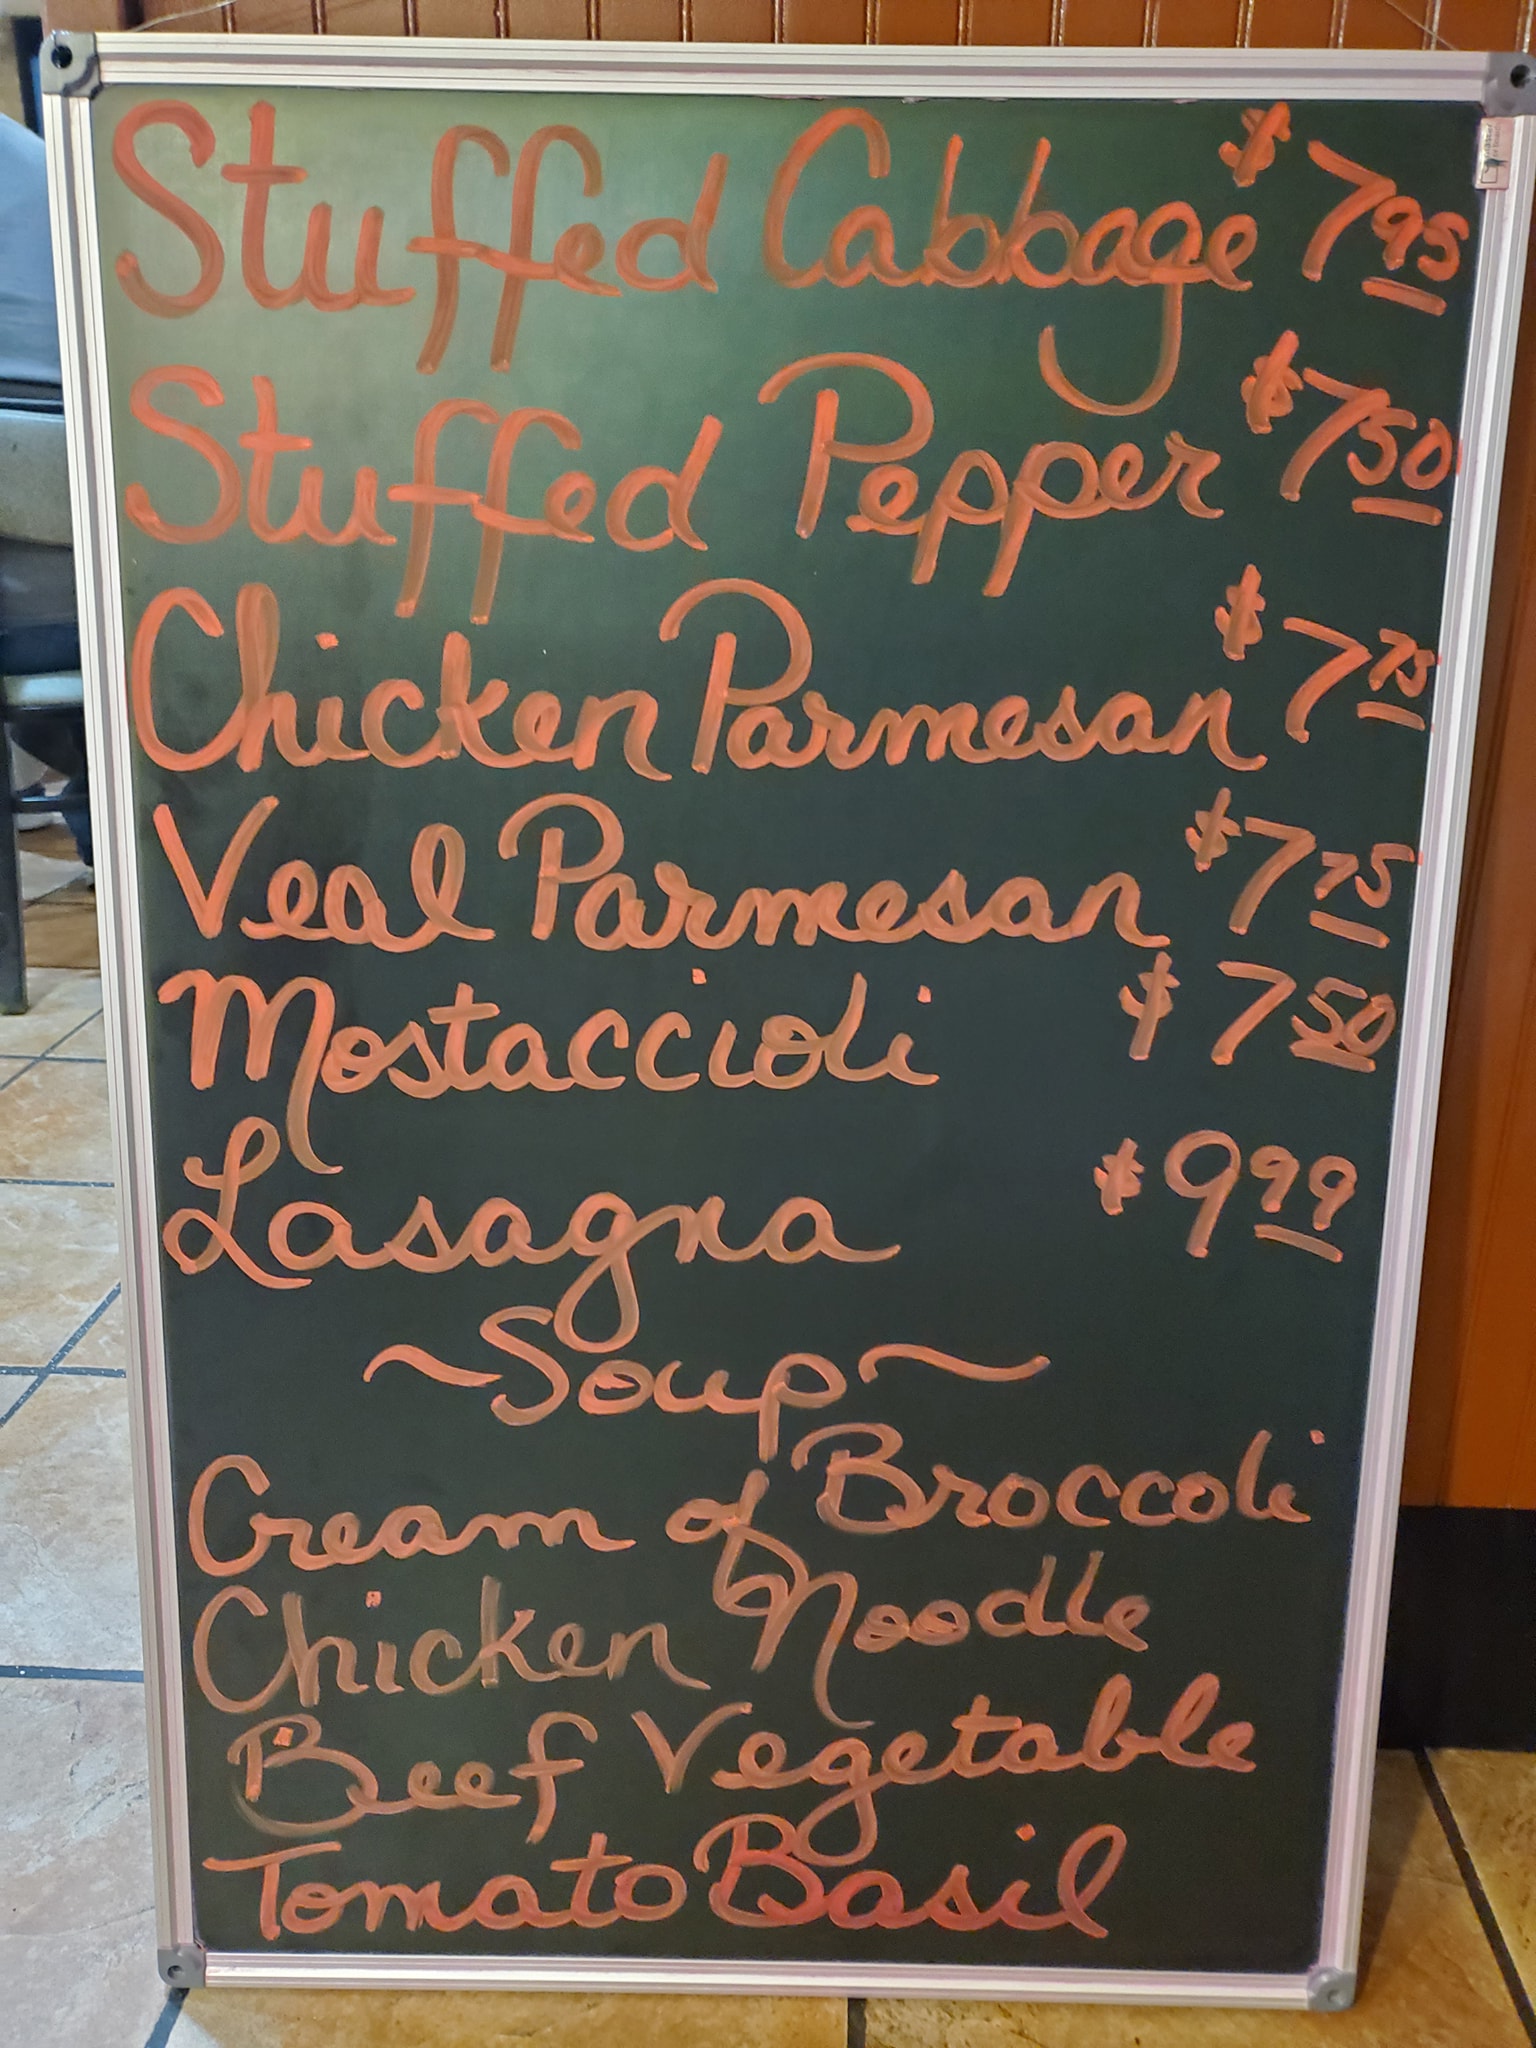 Stuffed Cabbage $7.95
Stuffed Pepper $7.50
Chicken Parmesan $7.75
Veal Parmesan $7.75
Mostaccioli $7.50
Lasagna $9.99
~Soup~
Cream of Broccoli
Chicken Noodle
Beef Vegetable
Tomato Basil